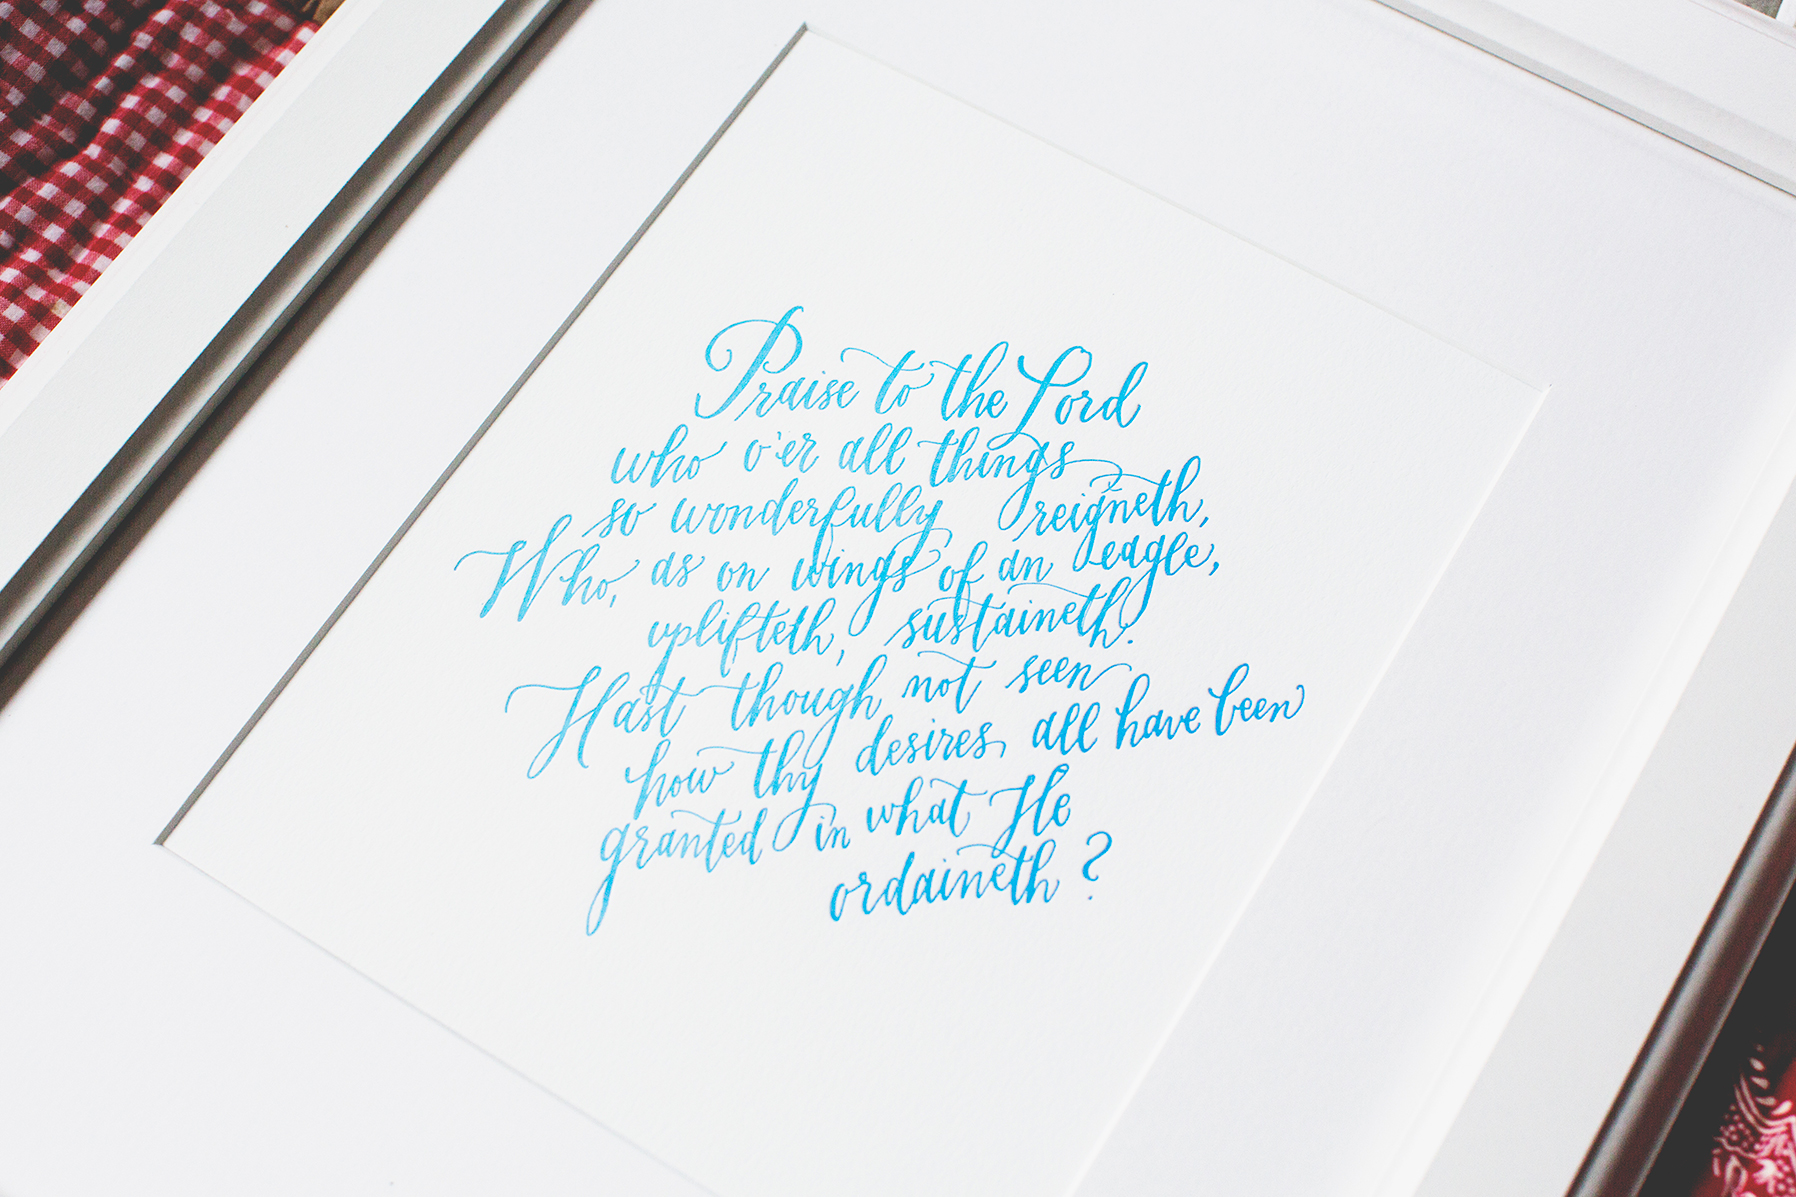 Praise to the Lord
who o'er all things
so wonderfully reigneth,
Who, as on wings of an eagle,
uplifteth, sustaineth.
Hast though not seen
how thy desires, all have been
granted in what He
ordaineth?